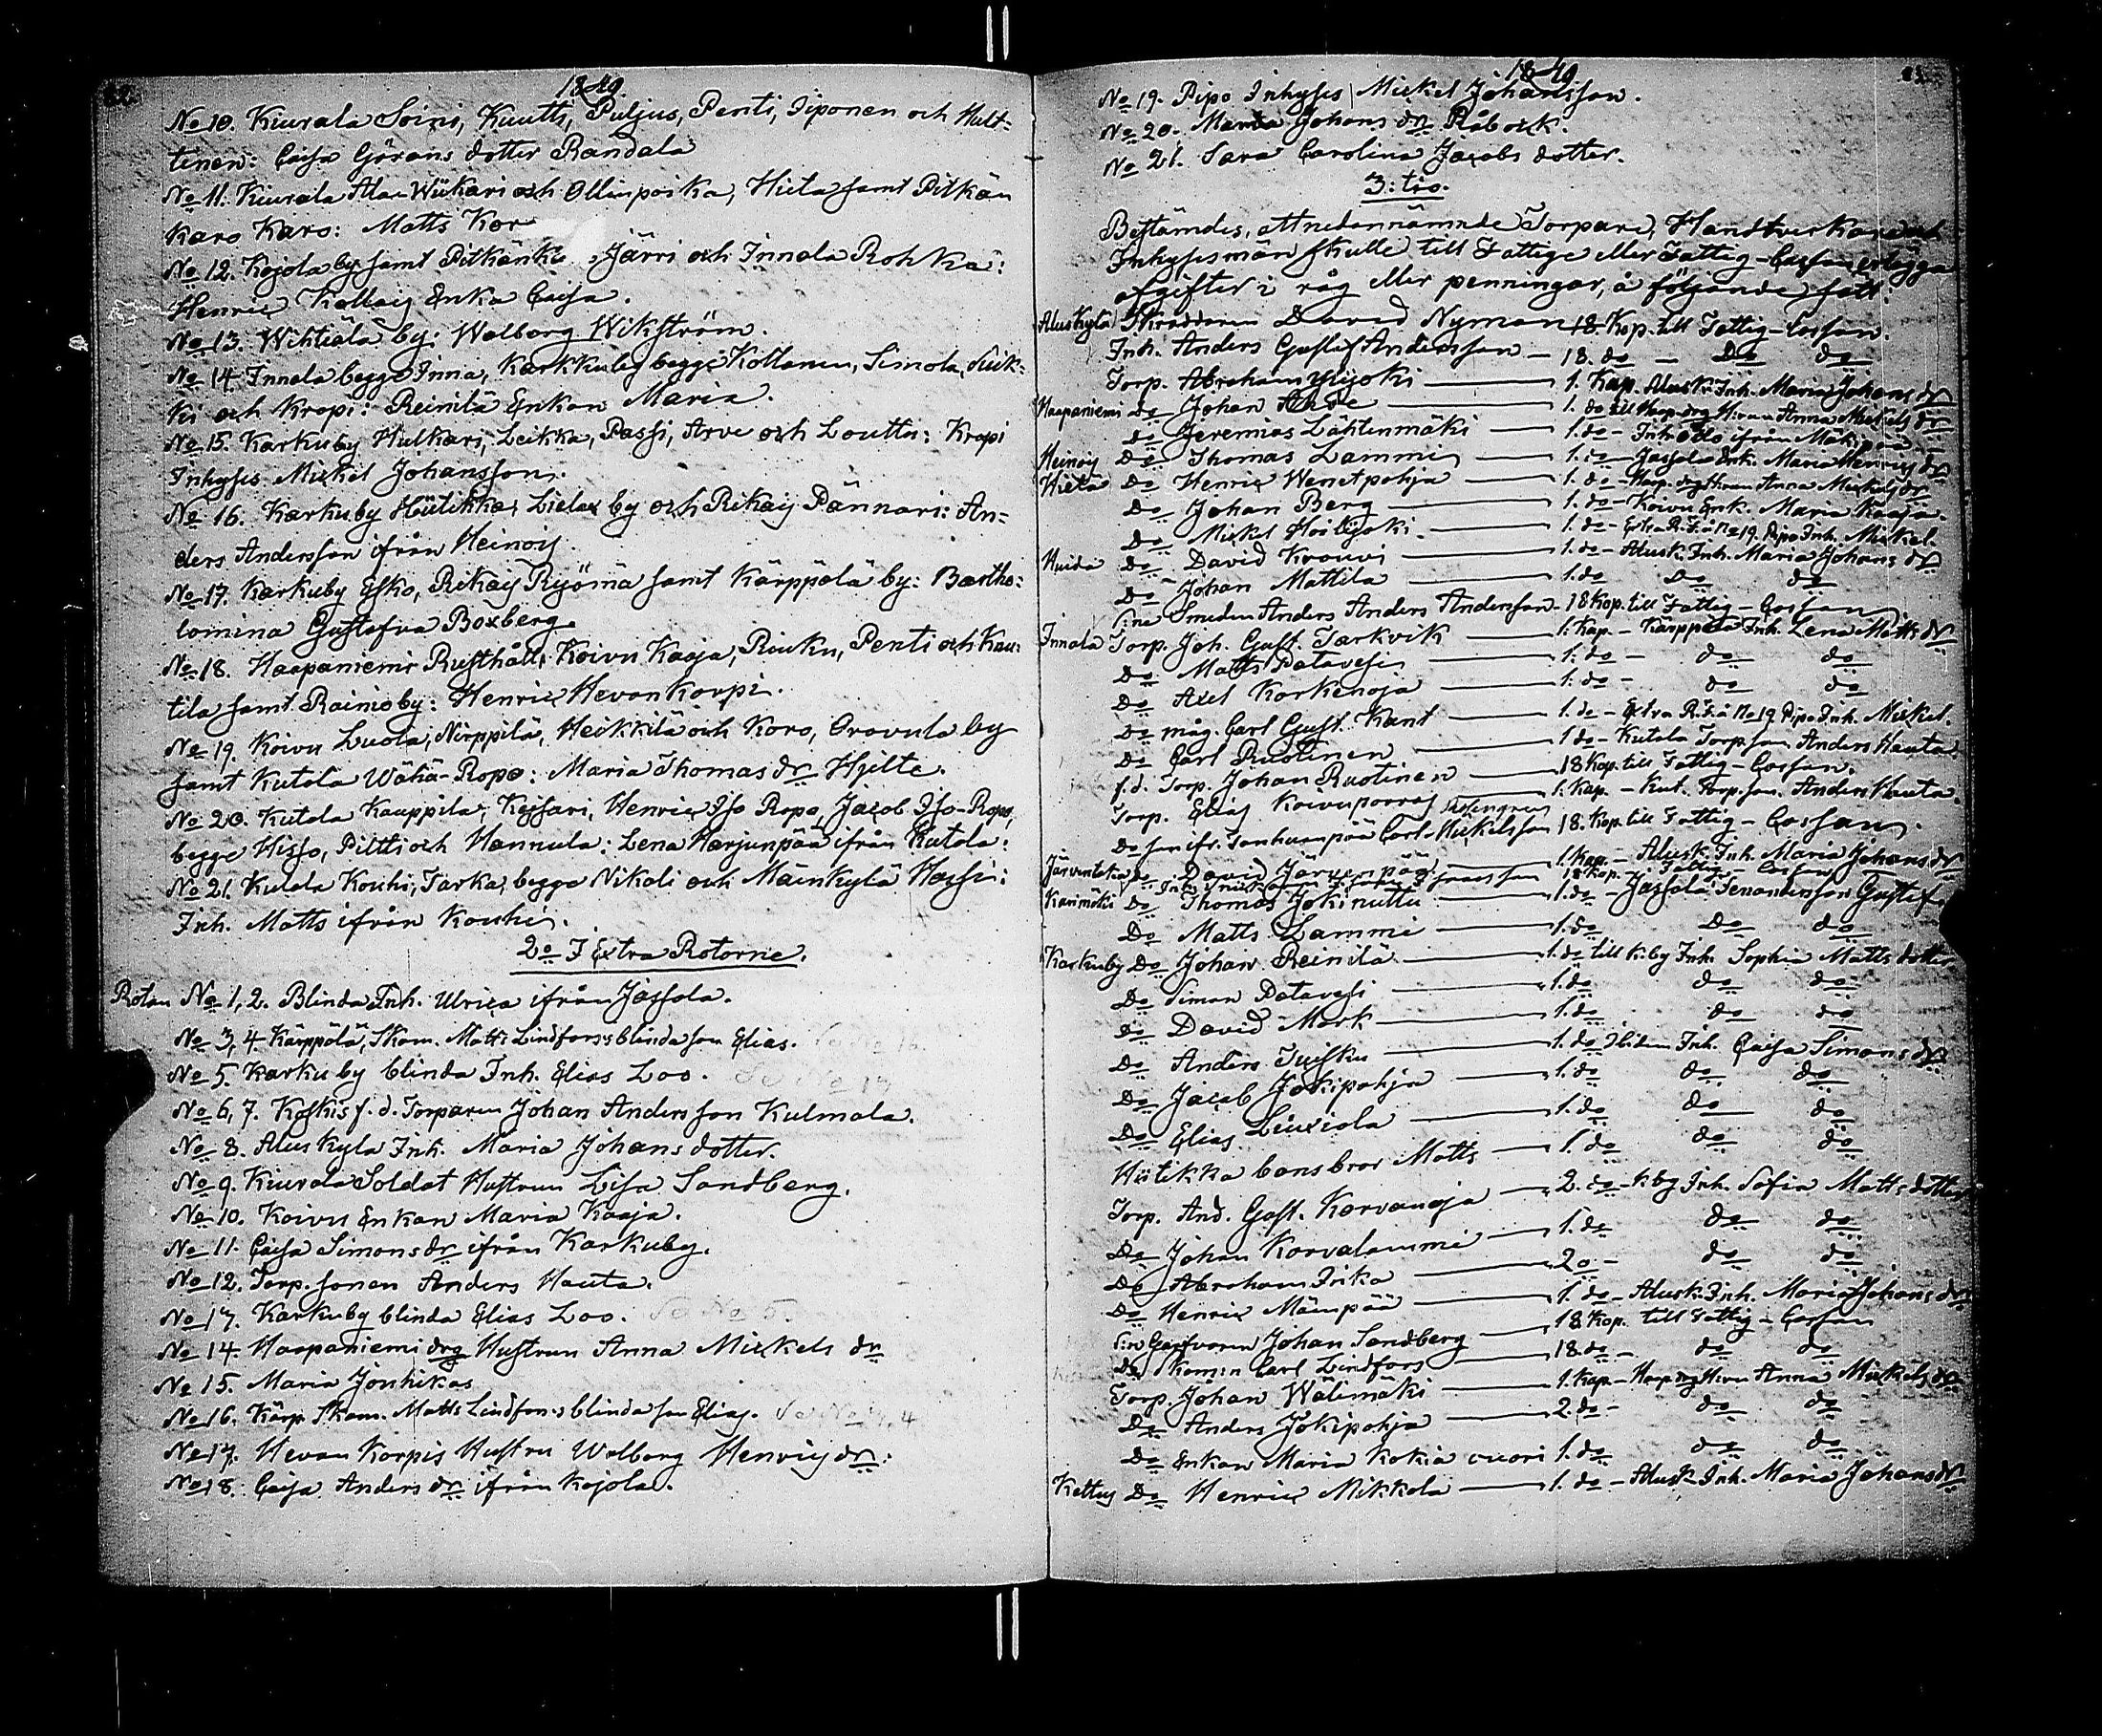 1849.
No 10. Kiurala Soini, Kuutti, Puljus, Penti, Iiponen och Hult-
tinen: Caisa Görans dotter Randala
No 11. Kiurala Ala Wiikari och Ollinpoika, Hiela samt Pitkän
Karo Karo: Matts Kor
No 12. Kojola by samt Pitkänkö Järri och Innala Rohka:
Henric Kallaig Enka Caisa.
No 13. Wihtiälä by: Walborg Wikström.
No 14. Innala begge Inna, Karkkuby begge Kottanen, Simola, Kuk-
ki och Kropi: Reinilä Enkan Maria.
No 15. Karkuby Hulkari, Leikka, Passi, Arve och Louttu: Kropi
Inhyses Mickel Johansson.
No 16. Karkuby Hiitikka, Liela by och Rikaij Pännäri: An-
ders Andersson ifrån Heinoij
No 17. Karkuby Esko, Rikaij Ryömä samt Kärppälä by: Bartho-
lomina Gustafva Boxberg.
No 18. Haapaniemi Rusthåll, Koivu Kaaja, Riuku, Penti och Kau-
tila samt Rainio by: Henric Hevonkorpi.
No 19. Koivu Luola, Nirppilä, Heikkilä och Koro, Oravula by
samt Kutala Wähä-Ropo: Maria Thomas dr Hjelte.
No 20. Kutala Kauppila, Keisari, Henric Iso Ropo, Jacob Iso-Ropo,
begge Hisso, Piltti och Hannula: Lena Harjunpää ifrån Kutala:
No 21. Kutala Kouhi, Tarka, begge Nikoli och Mäenkylä Hassi:
Inh. Matts ifrån Kouhi.
2o I Extra Rotorne.
Rotan No 1, 2. Blinda Inh. Ulrica ifrån Jassola.
No 3, 4 Kärppälä, Skom. Matts Lindfors's blinda son Elias. Se No 16.
No 5. Karkuby blinda Inh. Elias Loo. Se No 17
No 6, 7. Koskis f.d. Torparen Johan Andersson Kulmala.
No 8. Aluskyla Inh. Maria Johans dotter.
No 9. Kiurala Soldat Hustrun Lisa Sandberg.
No 10. Koivu Enkan Maria Kaaja.
No 11. Caisa Simons dr ifrån Karkuby.
No 12. Torp. sonen Anders Hauta.
No 17. Karkuby blinda Elias Loo. Se No 5.
No 14. Haapaniemi drg Hustrun Anna Mickels dr
No 15. Maria Jouhikas
No 16. Kärp. Skom. Matts Lindfors's blinda son Elias. Se No 3, 4
No 17. Hevon Korpis Hustru Walborg Henrics dr:
No 18. Caisa Anders dr ifrån Kojola.
1849.
No 19. Pipo Inhyses Mickel Johansson.
No 20. Maria Johans dr Råbock.
No 21. Sara Carolina Jacobs dotter.
3:tio.
Bestämdes, att nedannämnde Torpare, Handtverkare och
Inhysesmän skulle till Fattige eller Fattig-Cassan erlägga
afgifter i råg eller penningar, å följande sätt:
Aluskylä Skräddaren David Nyman 18. Kop. till Fattig-Cassan.
Inh. Anders Gustaf Andersson — 18. do — Do do
Torp. Abraham Yijoki — 1. Kap. Alusk. Inh. Maria Johans dr
Haapaniemi do Johan Ahde — 1. do till Haap. drg H:run Anna Mickels dr
do Jeremias Lähtenmäki — 1. do - Inh. Otto ifrån Mäkipää
Heinoij Do Thomas Lammi — 1. do - Jassola Enk. Maria Henrics dr
Hiela Do Henric Wenetpohja — 1. do - Haap. drg Hirun Anna Mickels dr
Do Johan Berg — 1. do - Koivu Enk. Maria Kaaja.
Do Mickel Hoilijoki — 1. do - Extra R. frå No 19. Pipo Inh. Mickel.
Huida Do David Krouvi — 1. do - Alusk. Inh. Maria Johans dr
Do Johan Mattila — 1. do Do do
S:ne Smeden Anders Anders Andersson - 18 Kop. till Fattig-Cassan
Innala Torp. Joh. Gust. Tarkvik — 1. Kap. - Kärppälä Inh. Lena Matts dr
Do Matts Patavesi — 1. do - do do
Do Axel Korkenoja — 1. do - do do
Do måg. Carl Gust. Kant — 1. do - Extra R. frå No 19 Pipo Inh. Mickel.
Do Carl Ruotinen — 1 do - Kutala Torp. son Anders Hauta.
f.d. Torp. Johan Ruotinen — 18 Kop. till Fattig-Cassan.
Torp. Elias Koivuporras — 1. Kap. - Kut. Torp. son. Anders Hauta.
Do son ifr. Tonhunpää Carl Mickelsson 18. Kop. till Fattig-Cassan.
Järventaka do David Järvenpää — 1. Kap. - Alusk. Inh. Maria Johans dr
18 Kop. - Fattig - Cassan
Karimäki Do Thomas Jokinuttu — 1. do - Jassola Gustaf
Do Matts Lammi — 1. do Do do
Karkuby Do Johan Reinilä — 1. do till K.by Inh. Sophia Matts dotter
Do Simon Patavesi — 1. do do do
Do David Mark — 1. do do do
Do Anders Tuisku — 1. do Ibidem Inh. Caisa Simons dr
Do Jacob Jokipohja — 1. do do do
Do Elias Liuxiala — 1. do do do
Hiitikka bonsbror Matts — 1. do do do
Torp. And. Gust. Karvanoja — 2. do - K.by Inh. Sofia Matts dotter
Do Johan Korvalammi — 1. do do do
Do Abraham Inka — 2 o - do do
Do Henric Mämpää — 1. do - Alusk. Inh. Maria Johans dr
S:n Garfvaren Johan Sandberg — 18 Kop. till Fattig-Cassan
Do Skom:n Carl Lindfors — 18. do - do do
Torp. Johan Wälimäki — 1. Kap. - Haap. drg H:run Anna Mickels dr
Do Anders Jokipohja — 2. do - do do
Do Enkan Maria Kokiavuori 1. do do do
Kettuj Do Henric Mikkola — 1. do - Alusk Inh. Maria Johans dr